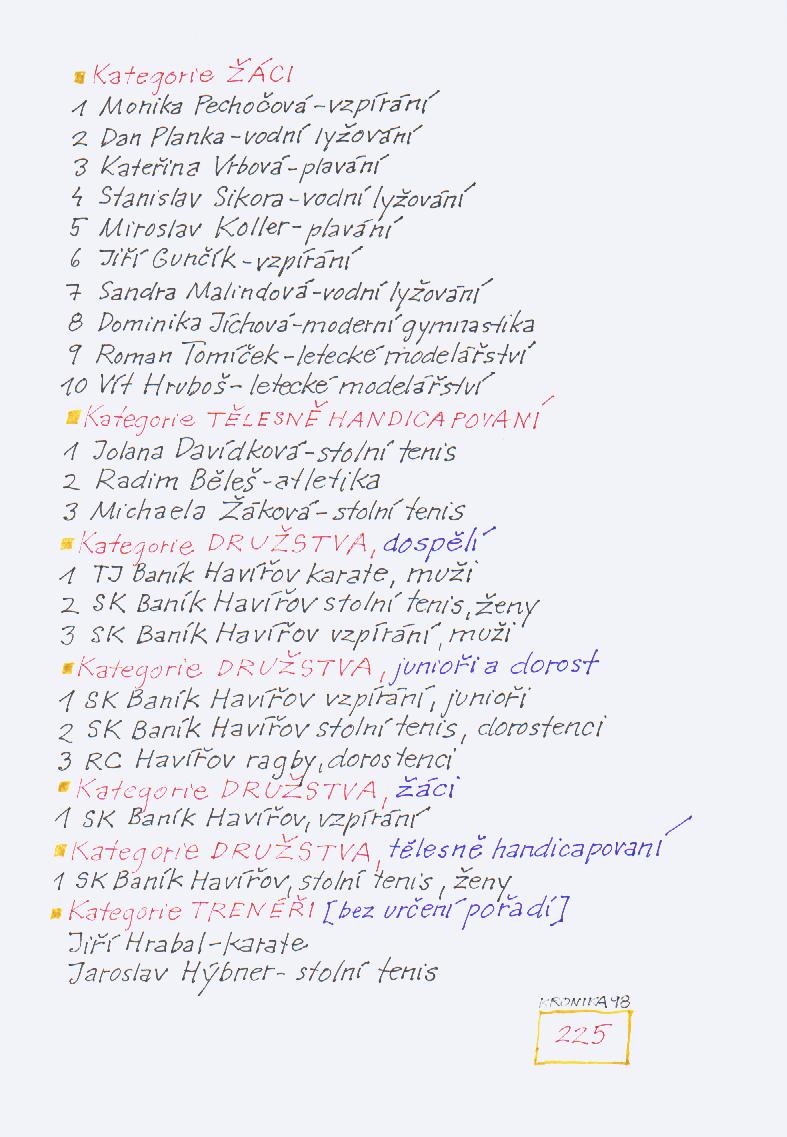 Kategorie ŽÁCI
1 Monika Pechočová-vzpírání
2 Dan Planka-vodní lyžování
3 Kateřina Vrbová-plavání
4 Stanislav Sikora-vodní lyžování
5 Miroslav Koller-plavání
6 Jiří Gunčík-vzpírání
7 Sandra Malindová-vodní lyžování
8 Dominika Jíchová-moderní gymnastika
9 Roman Tomíček-letecké modelářství
10 Vít Hruboš-letecké modelářství
Kategorie TĚLESNĚ HANDICAPOVANÍ
1 Jolana Davídková-stolní tenis
2 Radim Běleš-atletika
3 Michaela Žáková-stolní tenis
Kategorie DRUŽSTVA, dospělí
1 TJ Baník Havířov karate, muži
2 SK Baník Havířov stolní tenis, ženy
3 SK Baník Havířov vzpírání, muži
Kategorie DRUŽSTVA, junioři a dorost
1 SK Baník Havířov vzpírání, junioři
2 SK Baník Havířov stolní tenis, dorostenci
3 RC Havířov ragby, dorostenci
Kategorie DRUŽSTVA, žáci
1 SK Baník Havířov, vzpírání
Kategorie DRUŽSTVA, tělesně handicapovaní
1 SK Baník Havířov, stolní tenis, ženy
Kategorie TRENÉŘI [bez určení pořadí]
Jiří Hrabal-karate
Jaroslav Hýbner- stolní tenis
KRONIKA 98
225